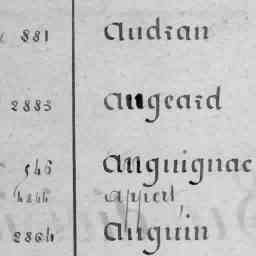 881 Audran
2885 Augeard
546 Anguignac
4844 Appert
2864 Auguin